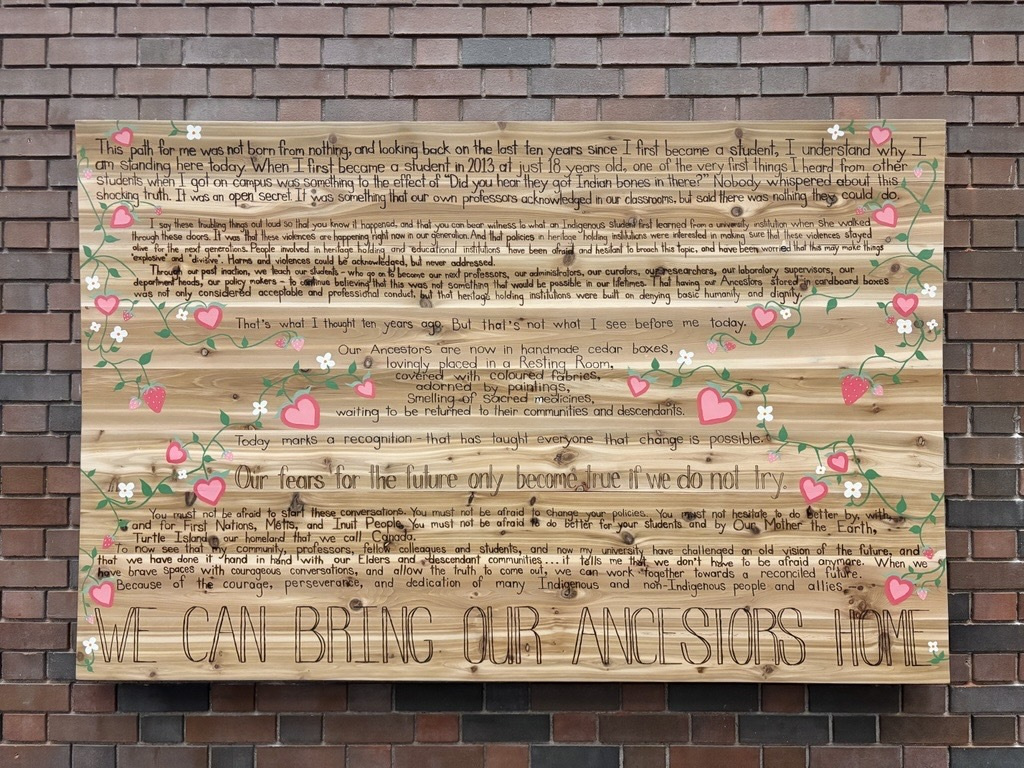 This path for me was not born from nothing, and looking back on the last ten years since I first became a student, I understand why I
am standing here today. When I first became a student in 2013 at just 18 years old, one of the very first things I heard from other
students when I got on campus was something to the effect of "Did you hear they got Indian bones in there?" Nobody whispered about this
shocking truth. It was an open secret. It was something that our own professors acknowledged in our classrooms, but said there was nothing they could do.
I say these troubling things out loud so that you know it happened, and that you can bear witness to what an Indigenous student first learned from a university institution when she walked
through these doors. It was that these violences are happening right now in our generation. And that policies in heritage holding institutions were interested in making sure that these violences stayed
alive for the next generations. People involved in heritage holding and educational institutions have been afraid and hesitant to broach this topic, and have been worried that this may make things
"explosive" and "divisive". Harms and violences could be acknowledged, but never addressed.
Through our past inaction, we teach our students - who go on to become our next professors, our administrators, our curators, our researchers, our laboratory supervisors, our
department heads, our policy makers - to continue believing that this was not something that would be possible in our lifetimes. That having our Ancestors stored in cardboard boxes
was not only considered acceptable and professional conduct, but that heritage holding institutions were built on denying basic humanity and dignity.
That's what I thought ten years ago. But that's not what I see before me today.
Our Ancestors are now in handmade cedar boxes,
lovingly placed in a Resting Room,
covered with coloured fabrics,
adorned by paintings,
Smelling of sacred medicines,
waiting to be returned to their communities and descendants.
Today marks a recognition - that has taught everyone that change is possible.
Our fears for the future only become true if we do not try.
You must not be afraid to start these conversations. You must not be afraid to change your policies. You must not hesitate to do better by, with,
and for First Nations, Métis, and Inuit People. You must not be afraid to do better for your students and by Our Mother the Earth,
Turtle Island - our homeland that we call Canada.
To now see that my community, professors, fellow colleagues and students, and now my university have challenged an old vision of the future, and
that we have done it hand in hand with our Elders and descendant communities... it tells me that we don't have to be afraid anymore. When we
have brave spaces with courageous conversations, and allow the truth to come out, we can work together towards a reconciled future.
Because of the courage, perseverance, and dedication of many Indigenous and non-Indigenous people and allies,
WE CAN BRING OUR ANCESTORS HOME